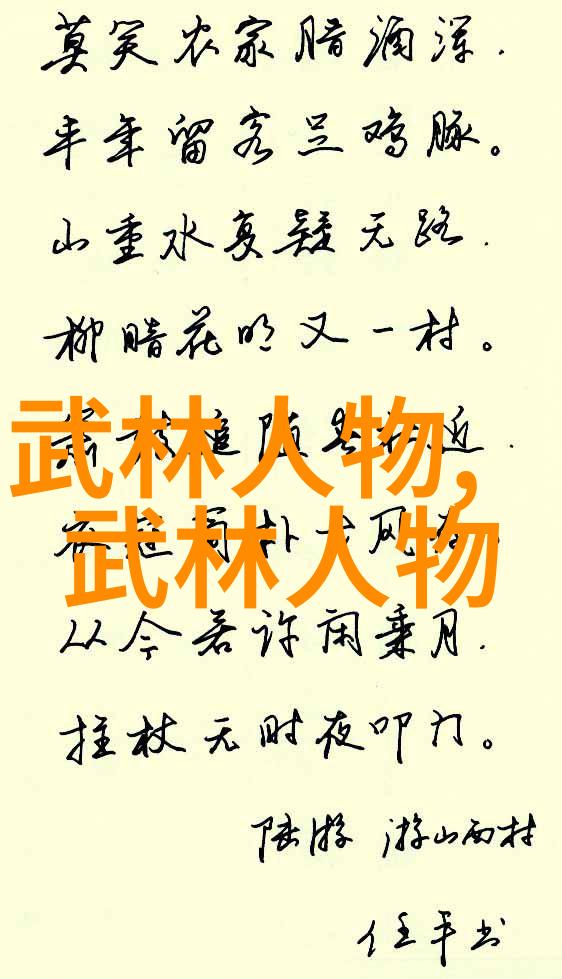 莫笑农家腊酒浑.
丰年留客足鸡豚。
山重水复疑无路.
柳暗花明又一村。
武林人物,
追随 近.
武林人物
从今若许闲乘月.
拄杖无时夜叩门。
陆游 游山西村
任平书